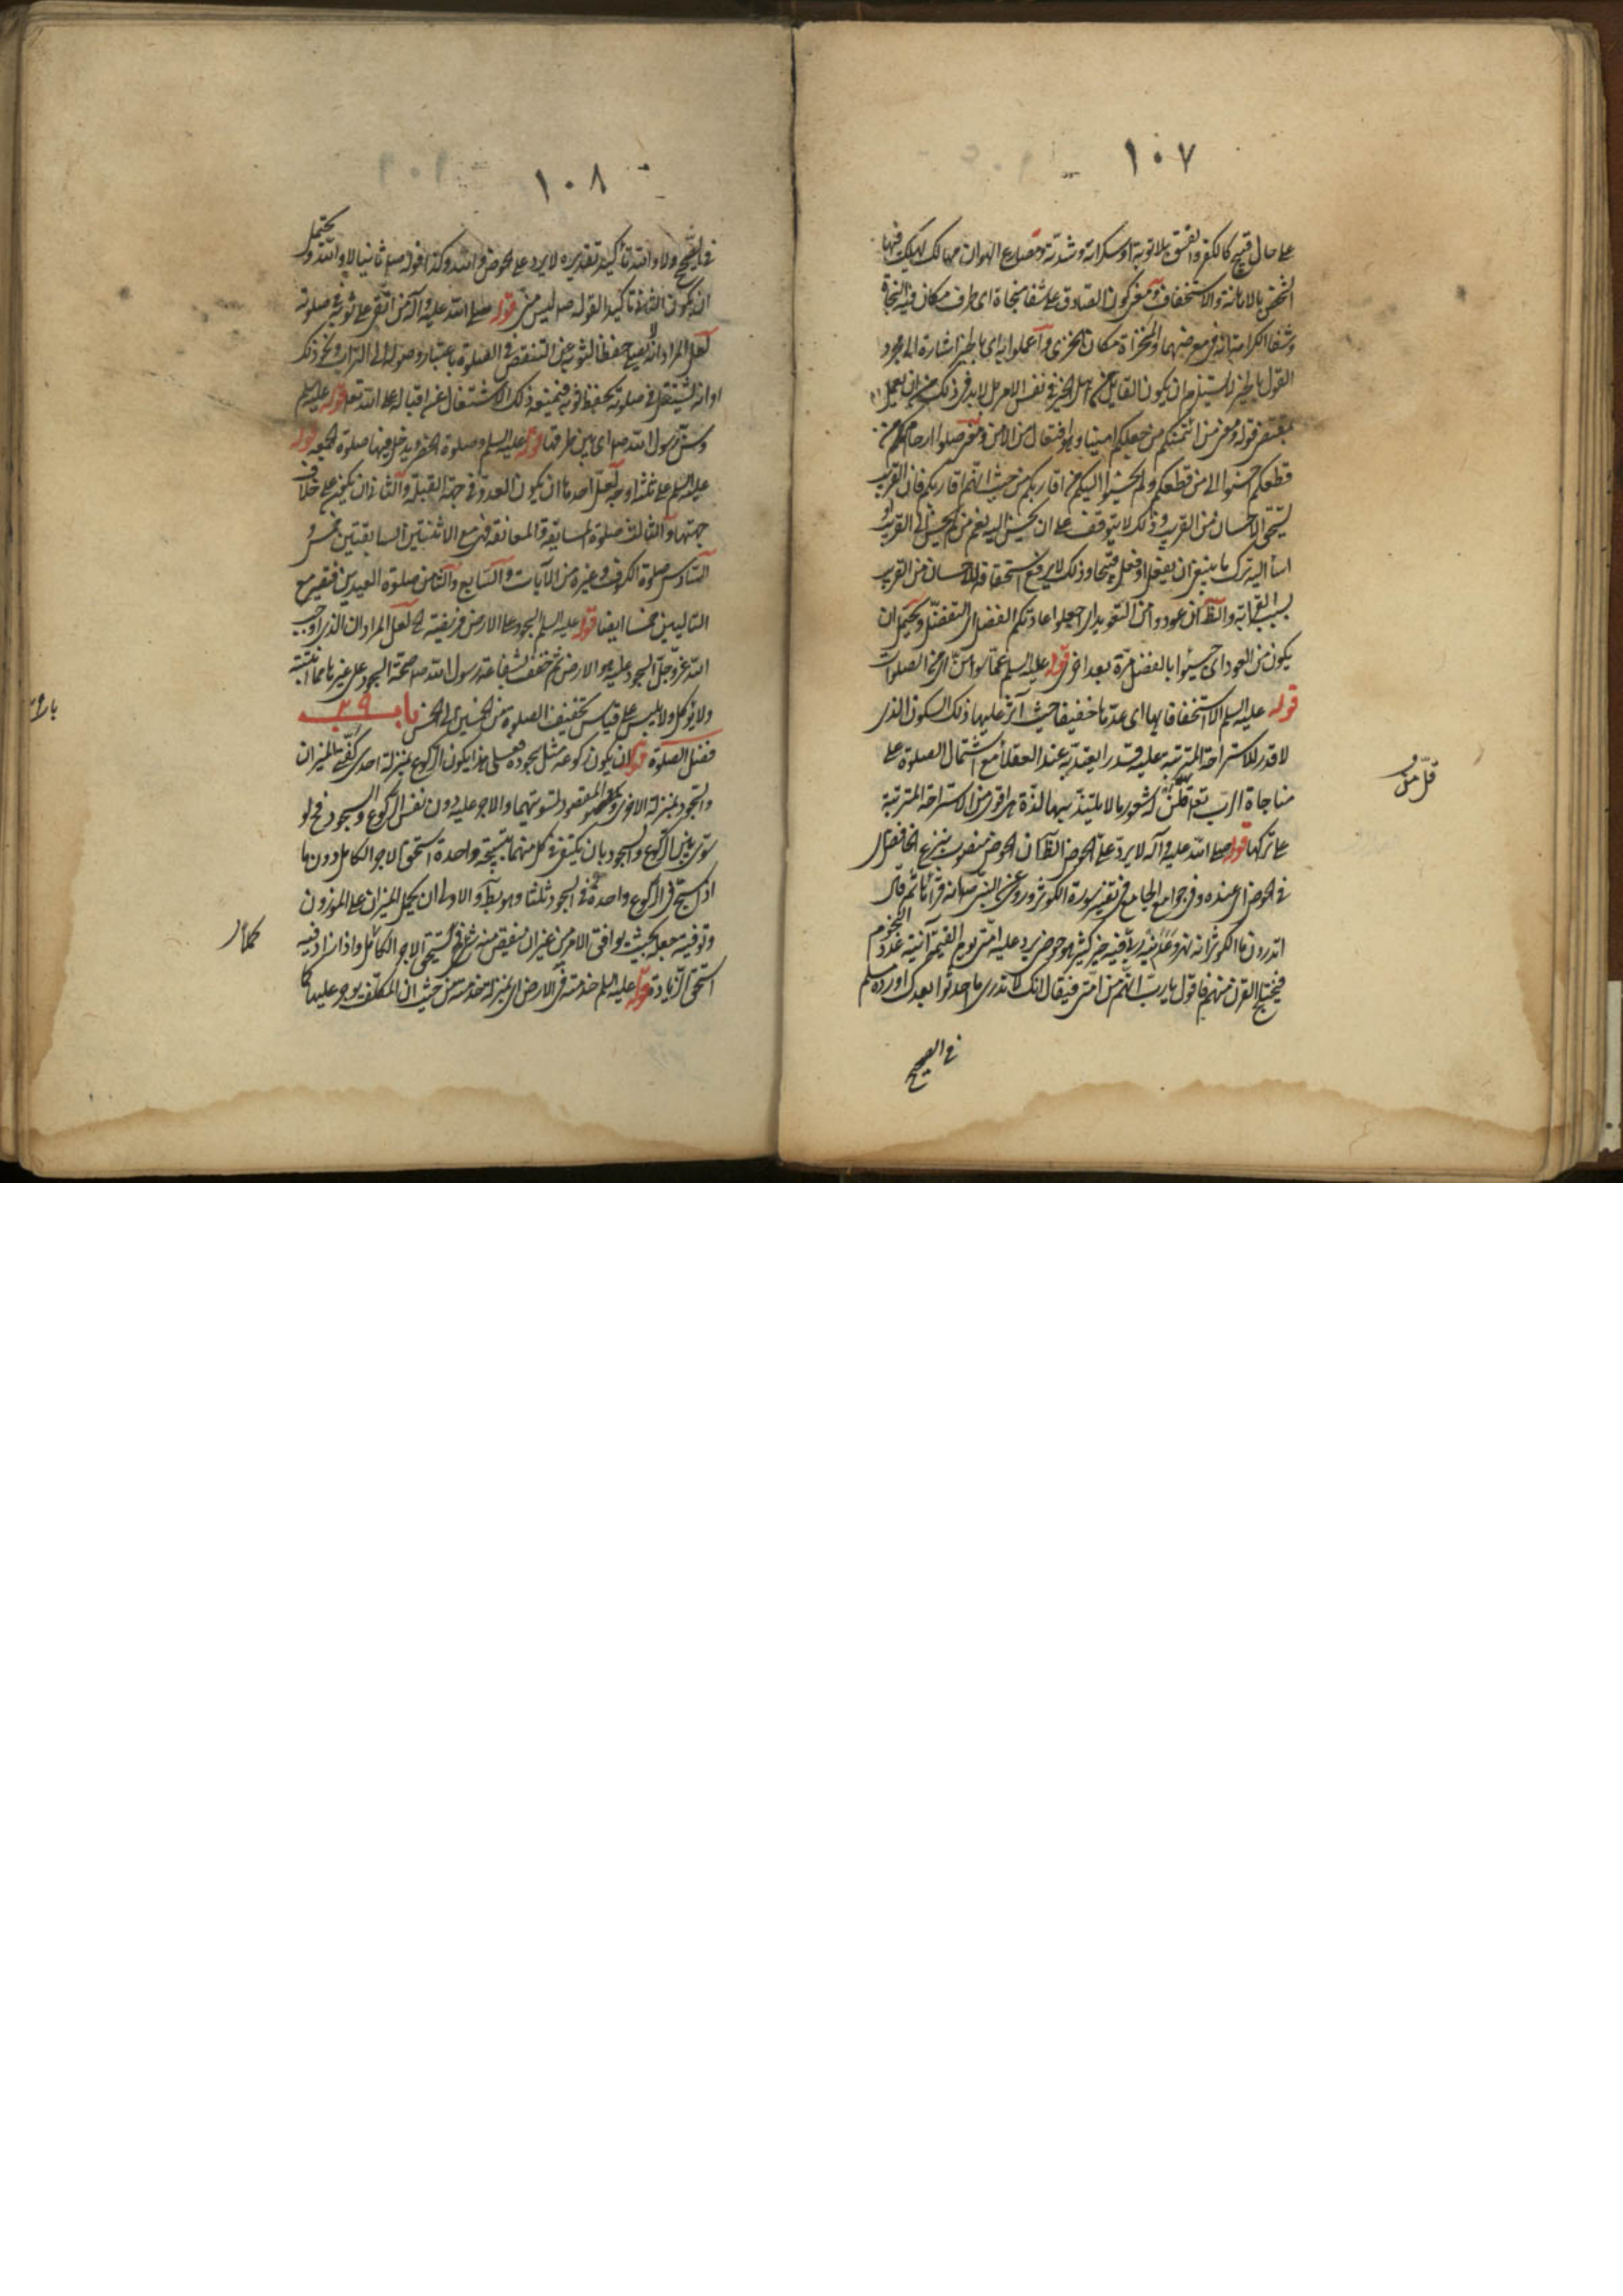 ١٠٧
على حال قبيح كالكفر والفسق بلا توبة او سكراته وشدته ومصارع الهوان مهالك يهلك فيها
الشخص بالاهانة والاستخفاف ومعنى كون الصادق على شفا منجاة اى طرف مكان فيه النجاة
وشفا الكرامة انه فى معرضهما والمخزاة مكان الخزى واعملوا به اى بالخير اشارة الى مجرد
القول بالخير لا يستلزم ان يكون القايل من اهل الخير فى نفس الامر بل لابد فى ذلك من ان يعمل
بمقتضى قوله ومعنى من ائتمنكم من جعلكم امينا وهو افتعال من الامن ومعنى صلوا ارحامكم من
قطعكم احسنوا الى من قطعكم ولم يحسنوا اليكم من اقاربكم من حيث انهم اقاربكم فان القريب
يستحق الاحسان من القريب وذلك لا يتوقف على ان يحسن اليه نعم من لم يحسن الى القريب او
اسأ اليه بترك ما ينبغى ان يفعل او فعل قبيحا وذلك لا يرفع استحقاقه للاحسان من القريب
بسبب القرابة والظاهر ان عودوا من التعويد اى اجعلوا عادتكم الفضل اى التفضل ويحتمل ان
يكون من العود اى جيئوا بالفضل مرة بعد اخرى قوله عليه السلم عما سوا من الصلوات
قوله عليه السلم الا استخفافا بها اى عدها خفيفا حيث آثر عليها ذلك السكون الذى
لا قدر للاستراحة المترتبة عليه قدرا يعتد به عند العقلأ مع اشتمال الصلوة على
مناجاة الرب تعالى له شعور ما لا يلتذ بها لذة هى اقوى من الاستراحة المترتبة
على تركها قوله صلى الله عليه وآله لا يرد على الحوض الظاهر ان الحوض منصوب بنزع الخافض اى
فى الحوض اى عنده وفى جوامع الجامع فى تفسير سورة الكوثر وروى عن النبى ص انه قرأها ثم قال
اتدرون ما الكوثر انه نهر وعدنيه ربى فيه خير كثير هو حوض يرد عليه امتى يوم القيمة آنيته عدد النجوم
فيختلج القرن منهم فاقول يا رب انهم من امتى فيقال انك لا تدرى ما احدثوا بعدك اورده مسلم
فى الصحيح
١٠٨
فى الصحيح ولا والله تأكيد تقديره لا يرد على الحوض والله وكذا قوله ص ثانيا لا والله ويحتمل
ان يكون الثانى تأكيدا لقوله ص ليس منى قوله صلى الله عليه وآله من اتقى على ثوبه فى صلوته
لعل المراد انه يصلى حفظا لثوبه عن التنقص فى الصلوة باعتبار وصوله الى التراب ونحو ذلك
او انه يشتغل فى صلوته بحفظ ثوبه فيمنعه ذلك الاشتغال عن اقباله على الله تعالى قوله عليه السلم
وسن رسول الله ص اى بين طرقها قوله عليه السلم وصلوة الحضر ويدخل فيها صلوة الجمعة قوله
عليه السلم على ثلثة اوجه لعل احدها ان يكون العدو فى جهة القبلة والثانى ان يكون على خلاف
جهتها والثالث صلوة المسايفة والمعانقة فهى مع الاثنتين السابقتين خمس و
السادس صلوة الكسوف وغيره من الآيات والسابع والثامن صلوة العيدين فتصير مع
التاليين خمسا ايضا قوله عليه السلم السجود على الارض فريضة لعل المراد ان الذى اوجب
الله عز وجل السجود عليه هو الارض ثم خفف بشفاعة رسول الله ص صحة السجود على غيرها مما انبتته
ولا يؤكل ولا يلبس على قياس تخفيف الصلوة من الخمسين الى الخمس باب ٢٩
فضل الصلوة قوله ان يكون ركوعه مثل سجوده فعلى هذا يكون الركوع بمنزلة احدى كفتى الميزان
والسجود بمنزلة الاخرى والمقصود تسويتهما والاجر عليه دون نفس الركوع والسجود فح لو
سوى بين الركوع والسجود بان يكتفى فى كل منهما بتسبيحة واحدة استحق الاجر الكامل دون ما
اذا سبح فى الركوع واحدة وفى السجود ثلثا وهو بط والاولى ان يحمل الميزان على الموزون
وتوفيه بجعله بحيث يوافق الامر من غير ان ينقص منه شئ فح يستحق الاجر الكامل واذا زاد فيه
استحق الزيادة قوله عليه السلم خدمته فى الارض اى بمنزلة خدمته من حيث ان المكلف يوجر عليها كما